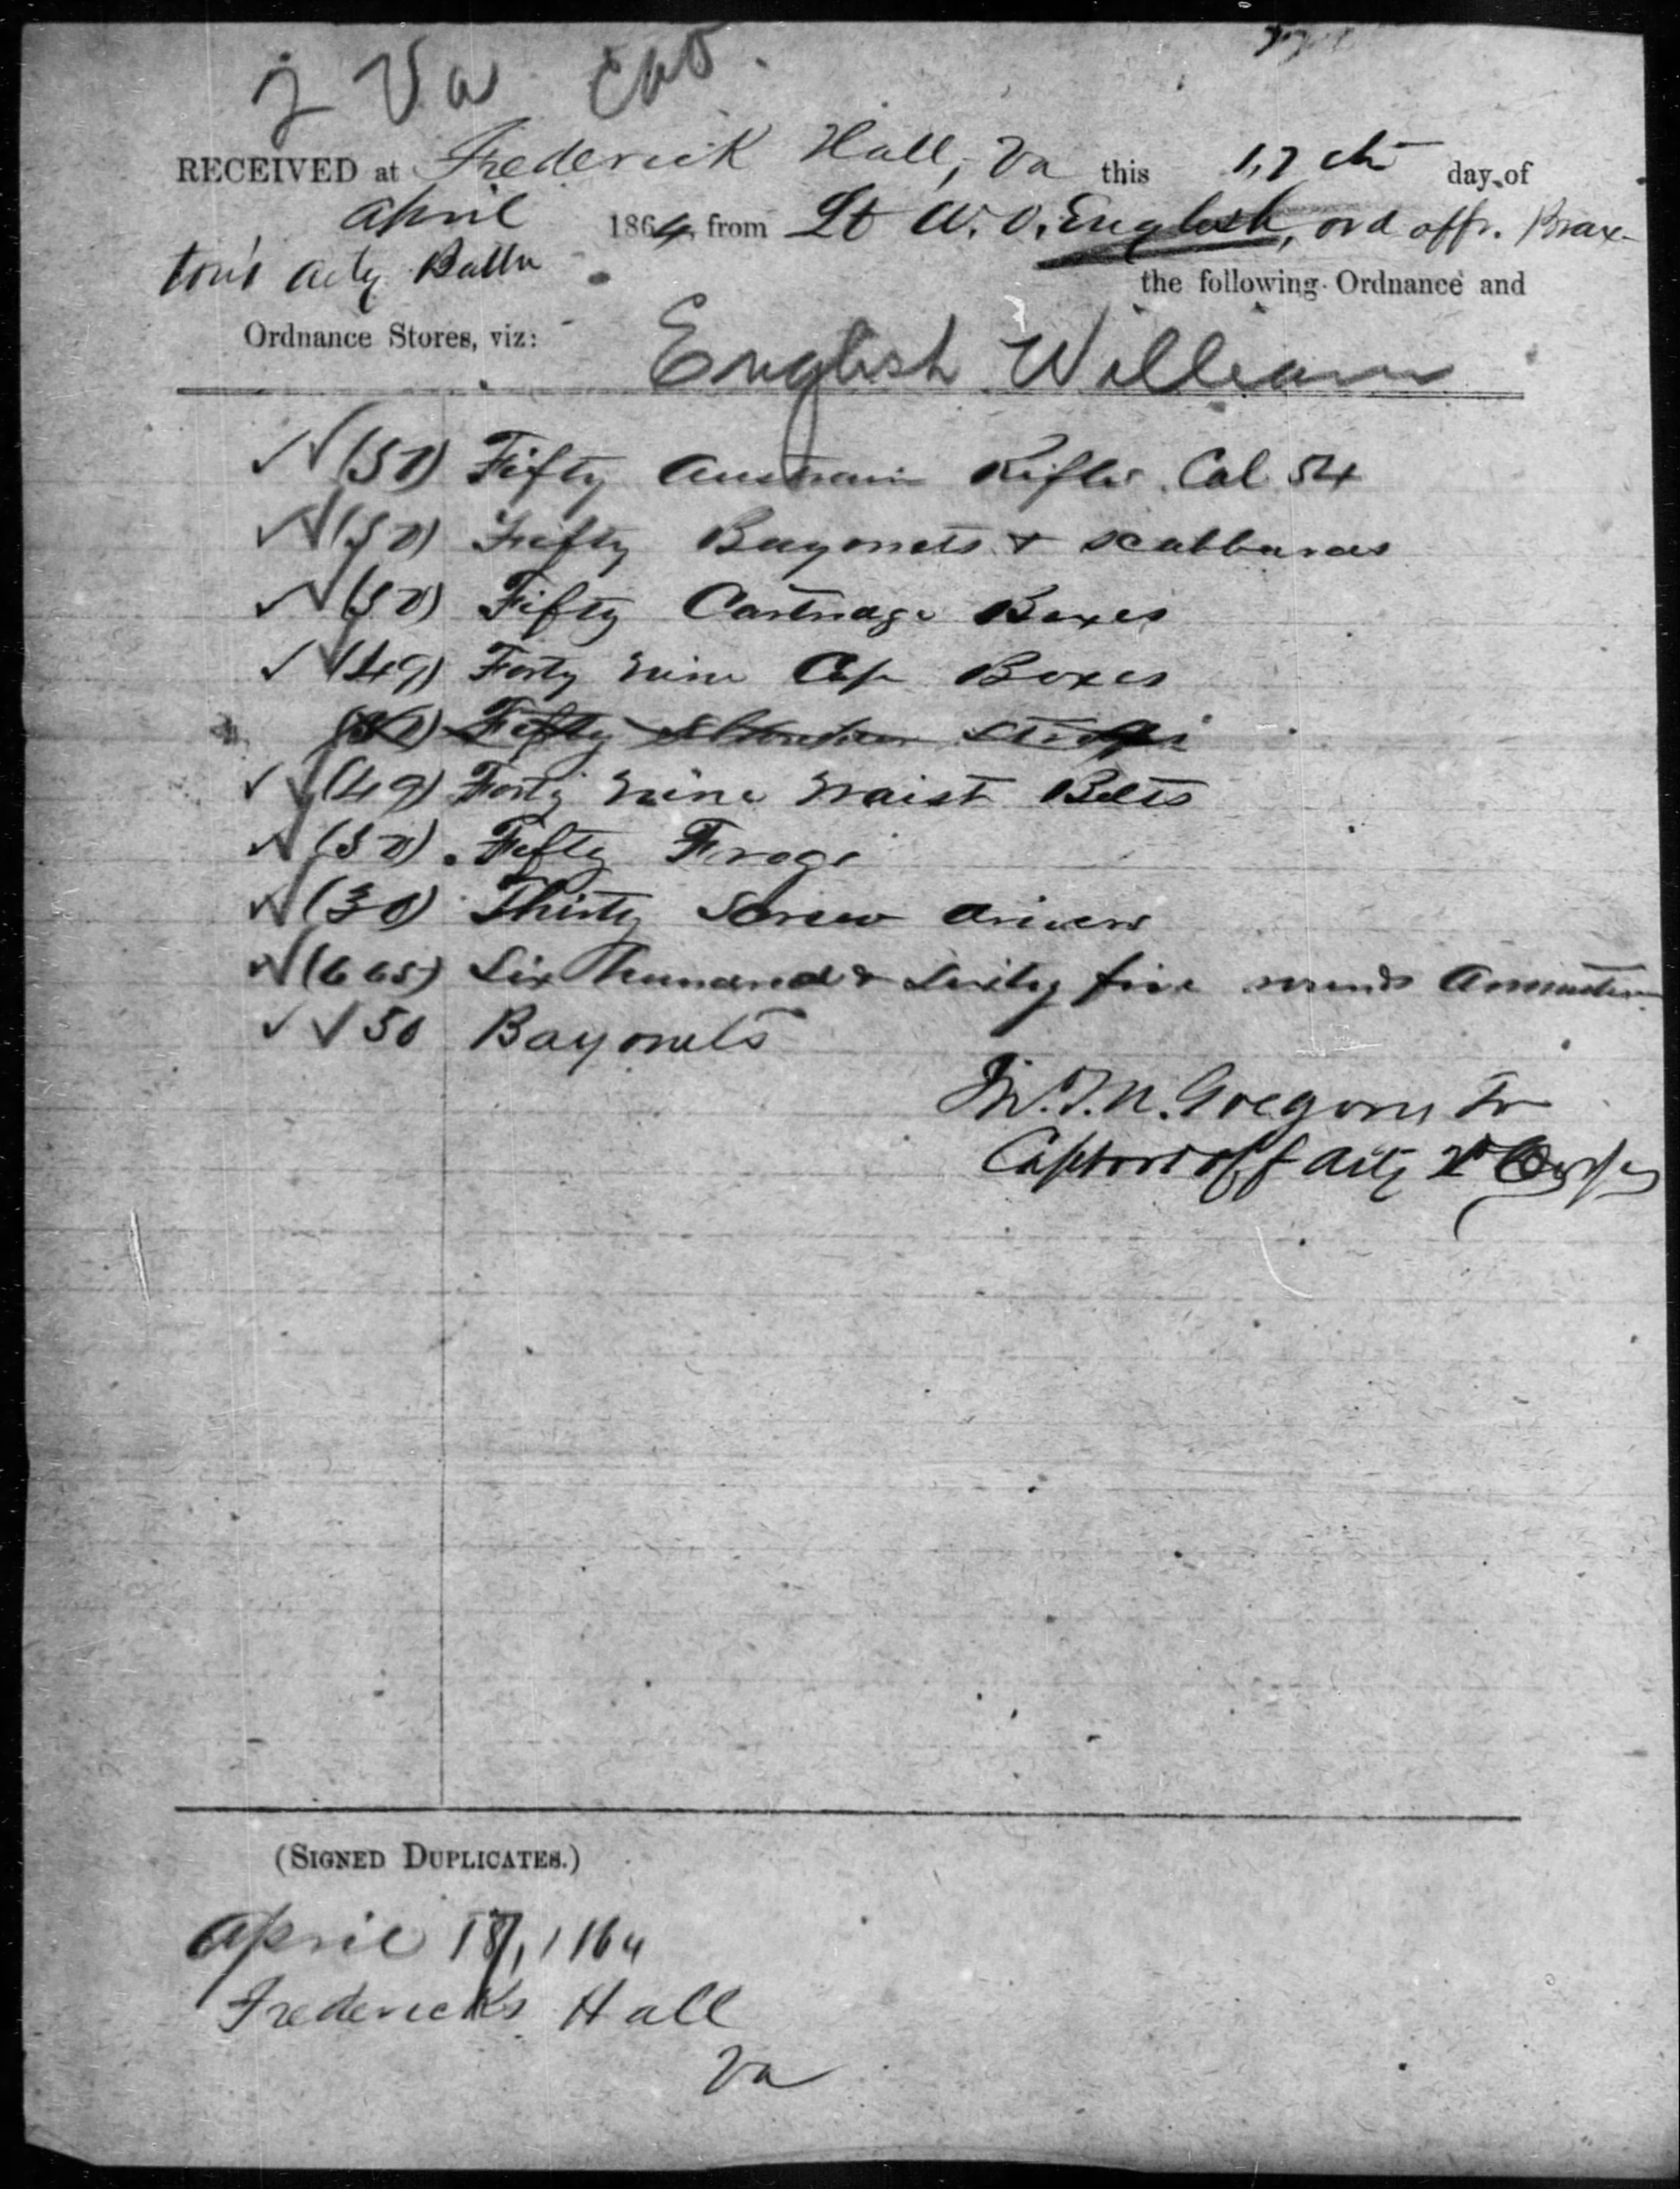 2 Va Cav.
RECEIVED at Frederick Hall, Va this 17th day of
April 1864, from Lt W. O. English, ord offr. Brax-
ton's Arty Battn
the following Ordnance and
Ordnance Stores, viz:
English William
(50) Fifty Austrian Rifles Cal 54
(50) Fifty Bayonets & scabbards
(50) Fifty Cartridge Boxes
(49) Forty nine Cap Boxes
(50) Fifty Shoulder Straps
(49) Forty nine Waist Belts
(50) Fifty Frogs
(30) Thirty Screw drivers
(665) Six hundred & sixty five rounds Ammution
50 Bayonets
W.T.N. Gregory Jr
Capt ord off Arty 2d Corps
(SIGNED DUPLICATES.)
April 17, 1864
Fredericks Hall
Va